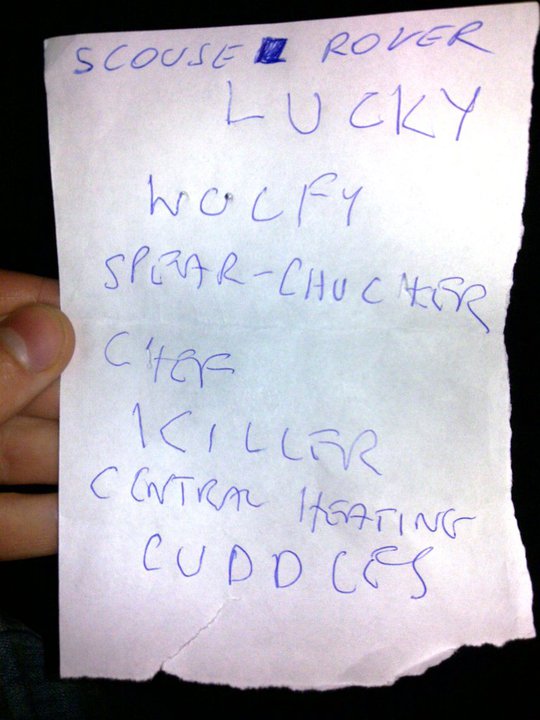 SCOUSE ROVER
LUCKY
WOLFY
SPEAR-CHUCKER
CHEF
KILLER
CENTRAL HEATING
CUDDLES